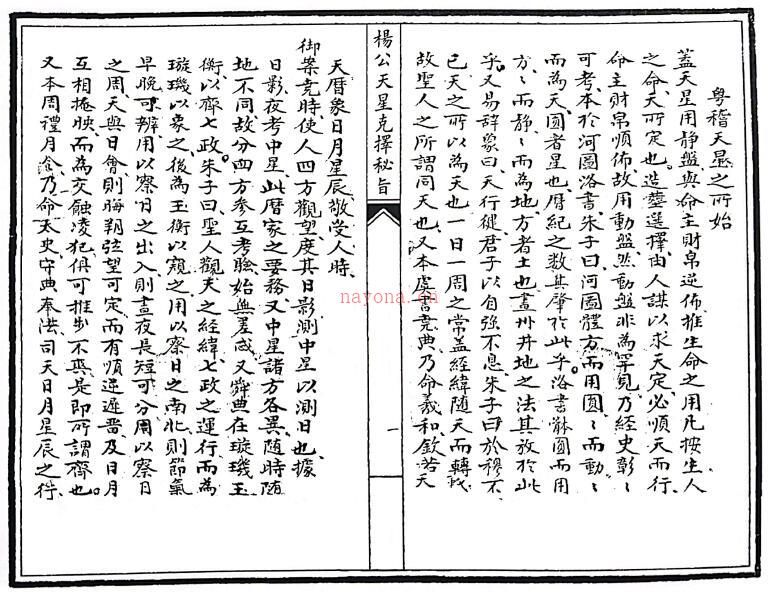 粵稽天星之所始
蓋天星用静盤與命主財帛逆佈推生命之用凡按生人
之命天所定也造塟選擇由人謀以求天定必順天而行
命主財帛順佈故用動盤然動盤非為罕見乃經史彰〻
可考本於河圖洛書朱子曰河圖體方而用圓〻而動〻
而為天圓者星也曆紀之数其肇於此乎洛書體圓而用
方〻而静〻而為地方者土也畫州井地之法其放於此
乎又易辞象曰天行健君子以自強不息朱子曰於穆不
已天之所以為天也一日一周之常盖經緯随天而轉我
故聖人之所謂同天也又本虞書堯典乃命羲和欽若天
楊公天星克擇秘旨
一
天曆象日月星辰敬受人時
御案堯時使人四方觀望度其日影測中星以測日也據
日影夜考中星此曆家之要務又中星諸方各異随時随
地不同故分四方参互考驗始無差忒又舜典在璇璣玉
衡以齊七政朱子曰聖人觀天之經緯七政之運行而為
璇璣以象之後為玉衡以窺之用以察日之南北則節氣
早晚可辨用以察日之出入則晝夜長短可分用以察日
之周天與日會則晦朔弦望可定而有順逆遲留及日月
互相掩映而為交蝕凌犯俱可推步不爽是即所謂齊也
又本周禮月令乃命太史守典奉法司天日月星辰之行
nayona.cn